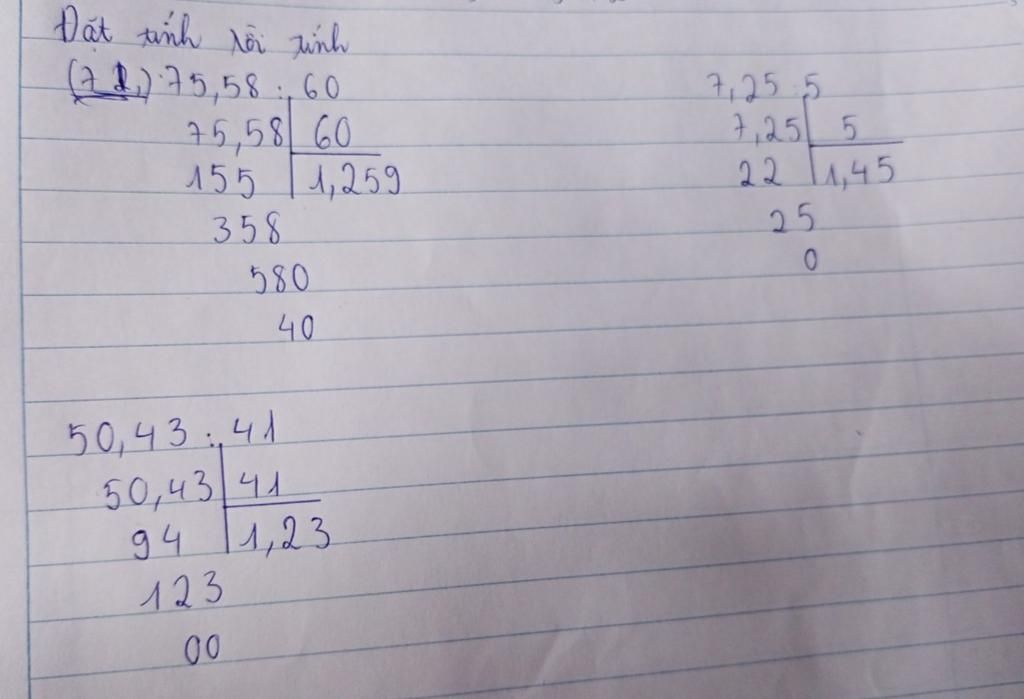 Đặt tính rồi tính
75,58 : 60
75,58 60
155 1,259
358
580
40
7,25 : 5
7,25 5
22 1,45
25
0
50,43 : 41
50,43 41
94 1,23
123
00